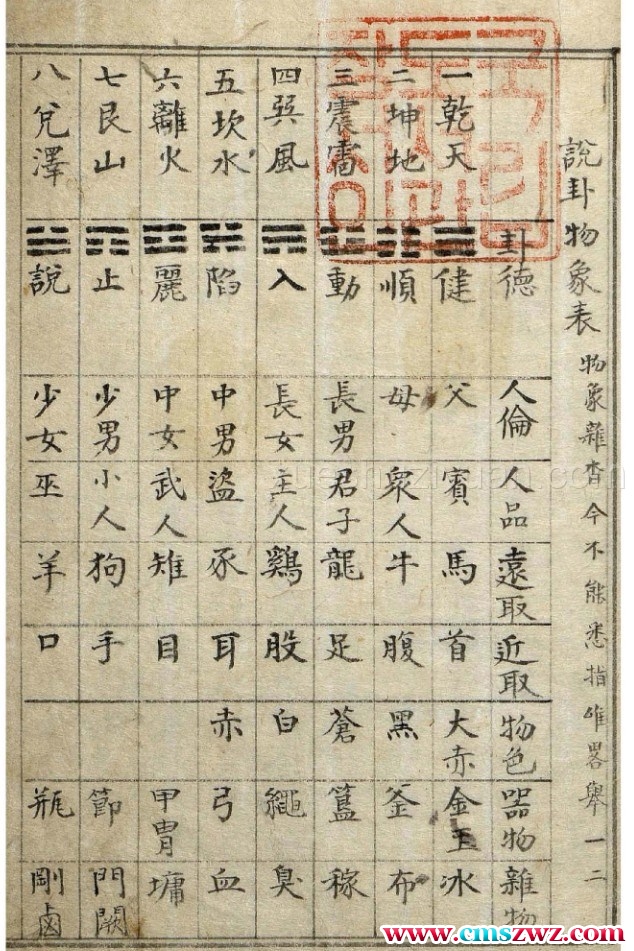 說卦物象表 物象雜沓今不能悉指唯畧舉一二
卦德 人倫 人品 遠取 近取 物色 器物 雜物
一乾天 健 父 賓 馬 首 大赤 金玉 冰
二坤地 順 母 衆人 牛 腹 黑 釜 布
三震雷 動 長男 君子 龍 足 蒼 簋 稼
四巽風 入 長女 主人 鷄 股 白 繩 臭
五坎水 陷 中男 盜 豕 耳 赤 弓 血
六離火 麗 中女 武人 雉 目 甲冑 墉
七艮山 止 少男 小人 狗 手 節 門闕
八兌澤 說 少女 巫 羊 口 瓶 剛鹵
www.cmszwz.com